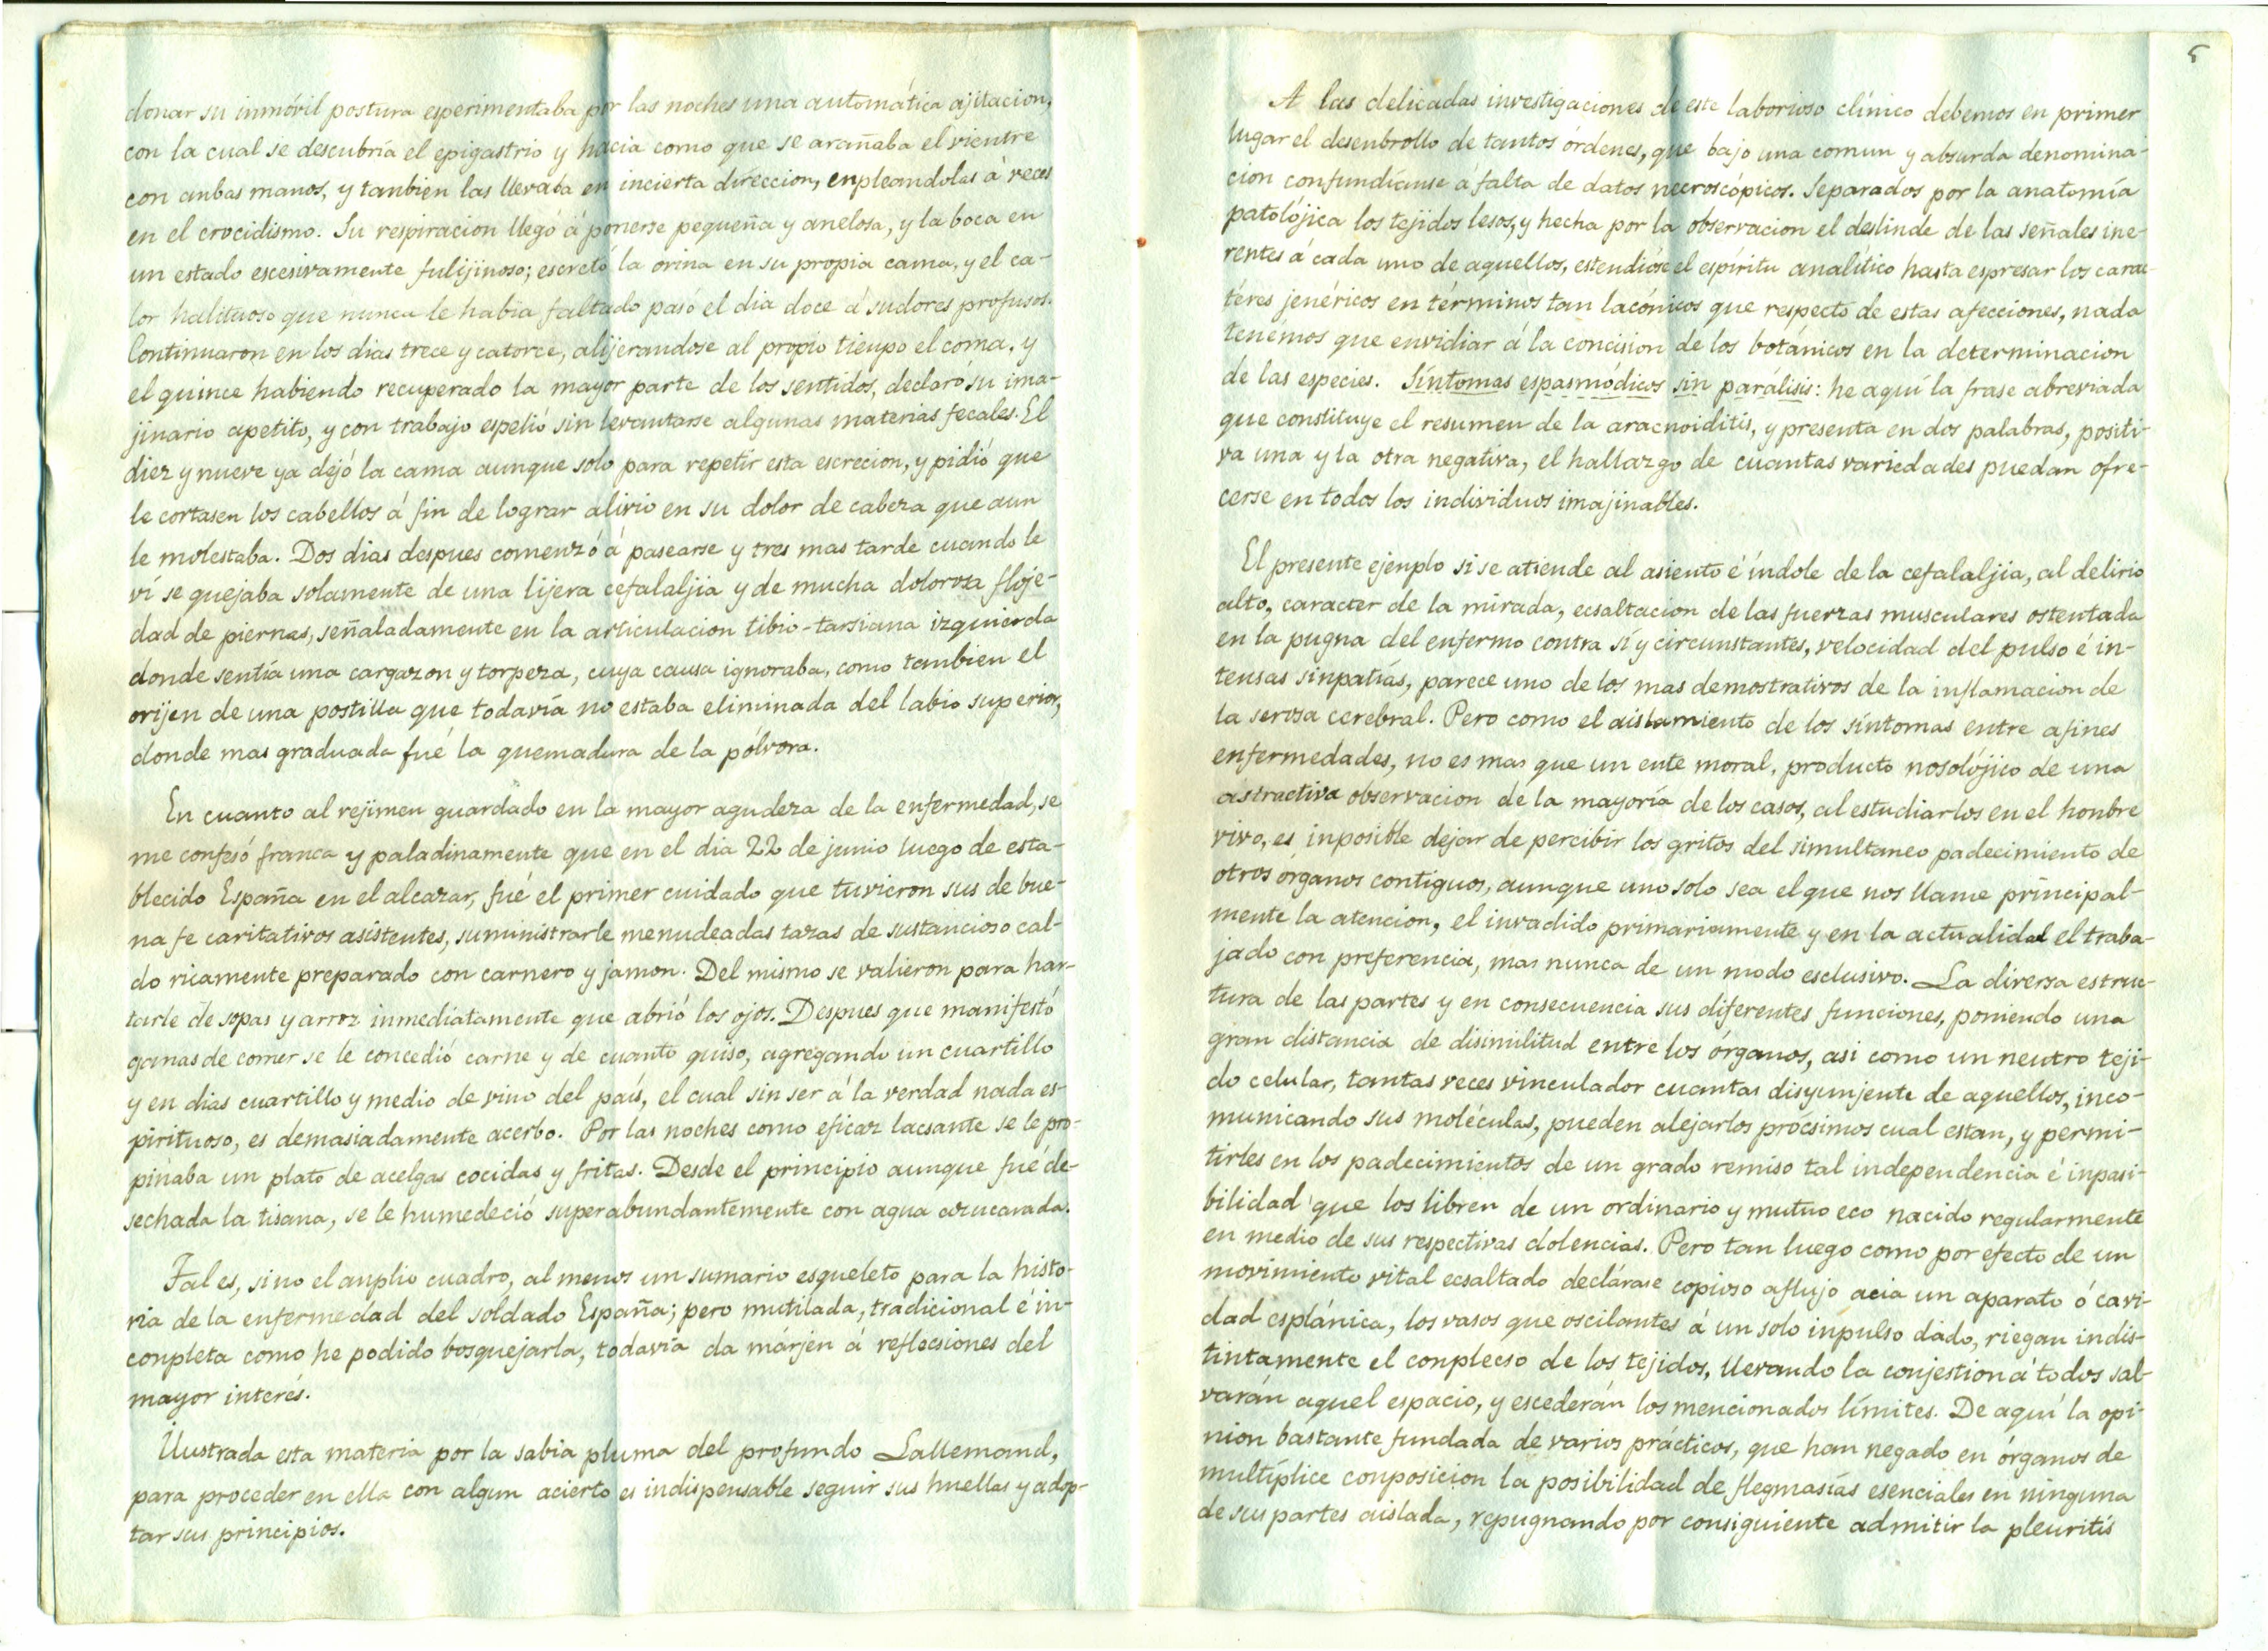 donar su inmóvil postura esperimentaba por las noches una automática ajitacion,
con la cual se descubría el epigastrio y hacia como que se arañaba el vientre
con anbas manos, y tanbien las llevaba en incierta direccion, enpleandolas á veces
en el crocidismo. Su respiracion llegó á ponerse pequeña y anelosa, y la boca en
un estado escesivamente fulijinoso; escretó la orina en su propia cama, y el ca-
lor halituoso que nunca le habia faltado pasó el dia doce á sudores profusos.
Continuaron en los dias trece y catorce, alijerandose al propio tienpo el coma, y
el quince habiendo recuperado la mayor parte de los sentidos, declaró su ima-
jinario apetito, y con trabajo espelió sin levantarse algunas materias fecales. El
diez y nueve ya dejó la cama aunque solo para repetir esta escrecion, y pidió que
le cortasen los cabellos á fin de lograr alivio en su dolor de cabeza que aun
le molestaba. Dos dias despues comenzó á pasearse y tres mas tarde cuando le
ví se quejaba solamente de una lijera cefalaljia y de mucha dolorosa floje-
dad de piernas, señaladamente en la articulacion tibio-tarsiana izquierda
donde sentía una cargazon y torpeza, cuya causa ignoraba, como tanbien el
orijen de una postilla que todavía no estaba eliminada del labio superior,
donde mas graduada fué la quemadura de la pólvora.
En cuanto al rejimen guardado en la mayor agudeza de la enfermedad, se
me confesó franca y paladinamente que en el dia 22 de junio luego de esta-
blecido España en el alcazar, fué el primer cuidado que tuvieron sus de bue-
na fe caritativos asistentes, suministrarle menudeadas tazas de sustancioso cal-
do ricamente preparado con carnero y jamon. Del mismo se valieron para har-
tarle de sopas y arroz inmediatamente que abrió los ojos. Despues que manifestó
ganas de comer se le concedió carne y de cuanto quiso, agregando un cuartillo
y en dias cuartillo y medio de vino del país, el cual sin ser á la verdad nada es-
pirituoso, es demasiadamente acerbo. Por las noches como eficaz lacsante se le pro-
pinaba un plato de acelgas cocidas y fritas. Desde el principio aunque fué de-
sechada la tisana, se le humedeció superabundantemente con agua azucarada.
Tal es, si no el anplio cuadro, al menos un sumario esqueleto para la histo-
ria de la enfermedad del soldado España; pero mutilada, tradicional é in-
conpleta como he podido bosquejarla, todavía da márjen á reflecsiones del
mayor interés.
Ilustrada esta materia por la sabia pluma del profundo Lallemand,
para proceder en ella con algun acierto es indispensable seguir sus huellas y adop-
tar sus principios.
5
A las delicadas investigaciones de este laborioso clínico debemos en primer
lugar el desenbrollo de tantos órdenes, que bajo una comun y absurda denomina-
cion confundíanse á falta de datos necroscópicos. Separados por la anatomía
patolójica los tejidos lesos, y hecha por la observacion el deslinde de las señales ine-
rentes á cada uno de aquellos, estendióse el espíritu analítico hasta espresar los carac-
téres jenéricos en términos tan lacónicos que respecto de estas afecciones, nada
tenemos que envidiar á la concision de los botánicos en la determinacion
de las especies. Síntomas espasmódicos sin parálisis: he aquí la frase abreviada
que constituye el resumen de la aracnoiditis, y presenta en dos palabras, positi-
va una y la otra negativa, el hallazgo de cuantas variedades puedan ofre-
cerse en todos los individuos imajinables.
El presente ejenplo si se atiende al asiento é índole de la cefalaljia, al delirio
alto, caracter de la mirada, ecsaltacion de las fuerzas musculares ostentada
en la pugna del enfermo contra sí y circunstantes, velocidad del pulso é in-
tensas sinpatías, parece uno de los mas demostrativos de la inflamacion de
la serosa cerebral. Pero como el aislamiento de los síntomas entre afines
enfermedades, no es mas que un ente moral, producto nosolójico de una
astractiva observacion de la mayoría de los casos, al estudiarlos en el honbre
vivo, es inposible dejar de percibir los gritos del simultaneo padecimiento de
otros órganos contiguos, aunque uno solo sea el que nos llame principal-
mente la atencion, el invadido primariamente y en la actualidad el traba-
jado con preferencia, mas nunca de un modo esclusivo. La diversa estruc-
tura de las partes y en consecuencia sus diferentes funciones, poniendo una
gran distancia de disimilitud entre los órganos, asi como un neutro teji-
do celular, tantas veces vinculador cuantas disyunjente de aquellos, inco-
municando sus moléculas, pueden alejarlos prócsimos cual estan, y permi-
tirles en los padecimientos de un grado remiso tal independencia é inpasi-
bilidad que los libren de un ordinario y mutuo eco nacido regularmente
en medio de sus respectivas dolencias. Pero tan luego como por efecto de un
movimiento vital ecsaltado declárase copioso aflujo acia un aparato ó cavi-
dad esplánica, los vasos que oscilantes á un solo inpulso dado, riegan indis-
tintamente el conplecso de los tejidos, llevando la conjestion á todos sal-
varán aquel espacio, y escederán los mencionados límites. De aquí la opi-
nion bastante fundada de varios prácticos, que han negado en órganos de
multíplice conposicion la posibilidad de flegmasías esenciales en ninguna
de sus partes aislada, repugnando por consiguiente admitir la pleuritis